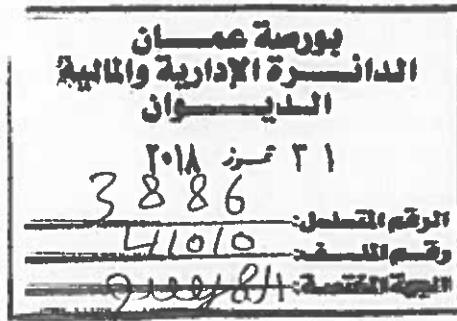 بورصة عمان
الدائرة الإدارية والمالية
الديوان
٣١ تموز ٢٠١٨
الرقم المتسلسل: 3886
رقم الملف: 41010
الجهة المختصة: